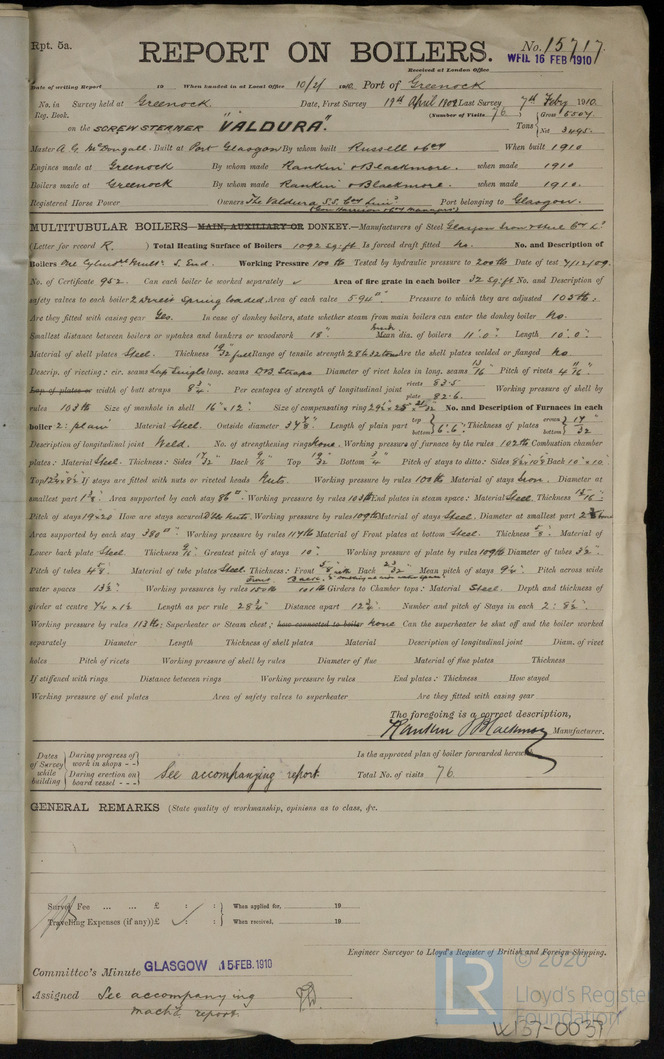 Rpt. 5a.
REPORT ON BOILERS.
No. 15717
Received at London Office
WFIL 16 FEB 1910
Date of writing Report 19 When handed in at Local Office 10/2/ 1910 Port of Greenock
No. in Survey held at Greenock Date, First Survey 19th April 1909 Last Survey 7th Feby 1910
Reg. Book. (Number of Visits 76
on the SCREW STEAMER "VALDURA". Tons { Gross 5507
Net 3495
Master A. G. McDougall. Built at Port Glasgow By whom built Russell & Co When built 1910
Engines made at Greenock By whom made Rankin & Blackmore. when made 1910
Boilers made at Greenock By whom made Rankin & Blackmore. when made 1910.
Registered Horse Power Owners The Valdura S.S. Coy Limd Port belonging to Glasgow.
MULTITUBULAR BOILERS MAIN, AUXILIARY OR DONKEY.—Manufacturers of Steel Glasgow Iron & Steel Co Ld
(Letter for record R. ) Total Heating Surface of Boilers 1092 sq. ft Is forced draft fitted No. No. and Description of
Boilers One Cylindl Mult. S. End. Working Pressure 100 lb Tested by hydraulic pressure to 200 lb Date of test 7/12/09.
No. of Certificate 952. Can each boiler be worked separately ✓ Area of fire grate in each boiler 32 sq. ft No. and Description of
safety valves to each boiler 2 Direct Spring loaded Area of each valve 5.94 " Pressure to which they are adjusted 105 lb.
Are they fitted with easing gear Yes. In case of donkey boilers, state whether steam from main boilers can enter the donkey boiler No.
Smallest distance between boilers or uptakes and bunkers or woodwork 18" Mean dia. of boilers 11'. 0" Length 10'. 0"
Material of shell plates Steel. Thickness 19/32 full Range of tensile strength 28 & 32 tons Are the shell plates welded or flanged No
Descrip. of riveting : cir. seams Lap Single long. seams D.B. Straps Diameter of rivet holes in long. seams 13/16 Pitch of rivets 4 11/16"
Lap of plates or width of butt straps 8 3/4" Per centages of strength of longitudinal joint rivets 83.5 plate 82.6. Working pressure of shell by
rules 103 lb Size of manhole in shell 16" x 12" Size of compensating ring No. and Description of Furnaces in each
boiler 2: plain Material Steel. Outside diameter 37 7/8" Length of plain part top bottom 6'. 6" Thickness of plates crown bottom } 17/32
Description of longitudinal joint Weld. No. of strengthening rings None. Working pressure of furnace by the rules 102 lb Combustion chamber
plates : Material Steel. Thickness : Sides 17/32 Back 9/16 Top 19/32 Bottom 3/4 Pitch of stays to ditto : Sides Back 10" x 10"
Top If stays are fitted with nuts or riveted heads Nuts. Working pressure by rules 100 lb Material of stays Iron. Diameter at
smallest part 1 3/8" Area supported by each stay 86 " Working pressure by rules 103 lb End plates in steam space : Material Steel Thickness
Pitch of stays 19 x 20 How are stays secured D'ble Nuts. Working pressure by rules 109 lb Material of stays Steel. Diameter at smallest part
Area supported by each stay 380 " Working pressure by rules 117 lb Material of Front plates at bottom Steel. Thickness 5/8" Material of
Lower back plate Steel Thickness 9/16 Greatest pitch of stays 10" Working pressure of plate by rules 109 lb Diameter of tubes 3 1/2
Pitch of tubes 4 5/8 Material of tube plates Steel. Thickness : Front 5/8 Back 23/32 Mean pitch of stays 9 1/4" Pitch across wide
water spaces 13 1/2" Working pressures by rules Front 150 lb Back 101 lb Girders to Chamber tops : Material Steel. Depth and thickness of
girder at centre Length as per rule 28 3/4 Distance apart 12 3/4 Number and pitch of Stays in each 2 : 8 1/2"
Working pressure by rules 113 lb: Superheater or Steam chest ; how connected to boiler None Can the superheater be shut off and the boiler worked
separately Diameter Length Thickness of shell plates Material Description of longitudinal joint Diam. of rivet
holes Pitch of rivets Working pressure of shell by rules Diameter of flue Material of flue plates Thickness
If stiffened with rings Distance between rings Working pressure by rules End plates : Thickness How stayed
Working pressure of end plates Area of safety valves to superheater Are they fitted with easing gear
The foregoing is a correct description,
Rankin & Blackmore Manufacturer.
Dates of Survey while building { During progress of work in shops - - } Is the approved plan of boiler forwarded herewith
{ During erection on board vessel - - - } See accompanying report. Total No. of visits 76
GENERAL REMARKS (State quality of workmanship, opinions as to class, &c.
Survey Fee ... ... £ : : } When applied for, 19
Travelling Expenses (if any) £ ✓ : : } When received, 19
Engineer Surveyor to Lloyd's Register of British and Foreign Shipping.
Committee's Minute GLASGOW 15 FEB. 1910
Assigned See accompanying
mach'y report.
© 2020
LR
Lloyd's Register
Foundation
W137-0037